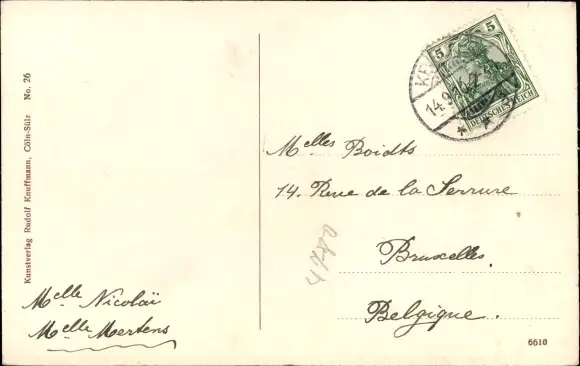 Kunstverlag Rudolf Kauffmann, Cöln-Sülz. No. 26
5 5
DEUTSCHES REICH
14.9.
Melles Boidts
14. Rue de la Serrure
Bruxelles.
Belgique.
Melle Nicolaï
Melle Mertens
6610